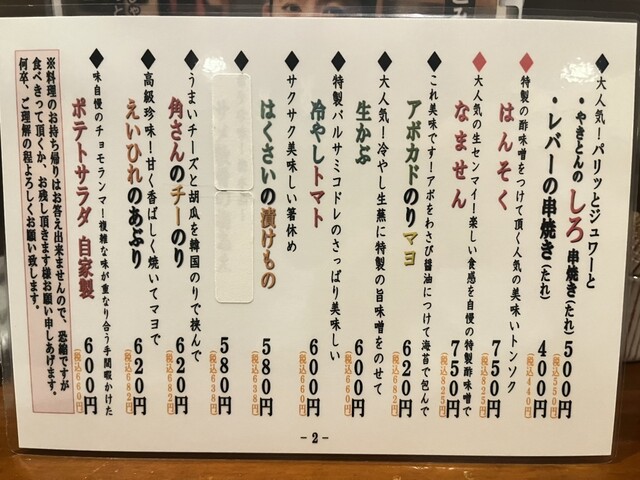 ◆大人気！パリッとジュワーと
・やきとんのしろ串焼き(たれ) 500円
(税込550円)
・レバーの串焼き(たれ) 400円
(税込440円)
◆特製の酢味噌をつけて頂く人気の美味いトンソク
はんそく 750円
(税込825円)
◆大人気の生センマイ！楽しい食感を自慢の特製酢味噌で
なません 750円
(税込825円)
◆これ美味です！アボをわさび醤油につけて海苔で包んで
アボカドのりマヨ 620円
(税込682円)
◆大人気！冷やし生蕪に特製の旨味噌をのせて
生かぶ 600円
(税込660円)
◆特製バルサミコドレのさっぱり美味しい
冷やしトマト 600円
(税込660円)
◆サクサク美味しい箸休め
はくさいの漬けもの 580円
(税込638円)
◆
580円
(税込638円)
◆うまいチーズと胡瓜を韓国のりで挟んで
角さんのチーのり 620円
(税込682円)
◆高級珍味！甘く香ばしく焼いてマヨで
えいひれのあぶり 620円
(税込682円)
◆味自慢のチョモランマ！複雑な味が重なり合う手間暇かけた
ポテトサラダ 自家製 600円
(税込660円)
※料理のお持ち帰りはお答え出来ませんので、恐縮ですが
食べきって頂くか、お残し頂きます様お願い申しあげます。
何卒、ご理解の程よろしくお願い致します。
-2-